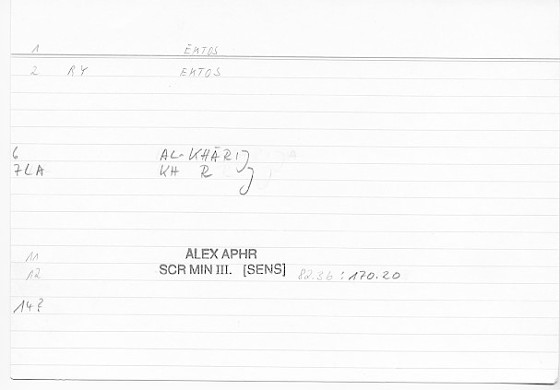 1 EKTOS
2 RY EKTOS
6 AL-KHĀRIJ
7LA KH R J
11 ALEX APHR
12 SCR MIN III. [SENS] 82.36 : 170.20
14?